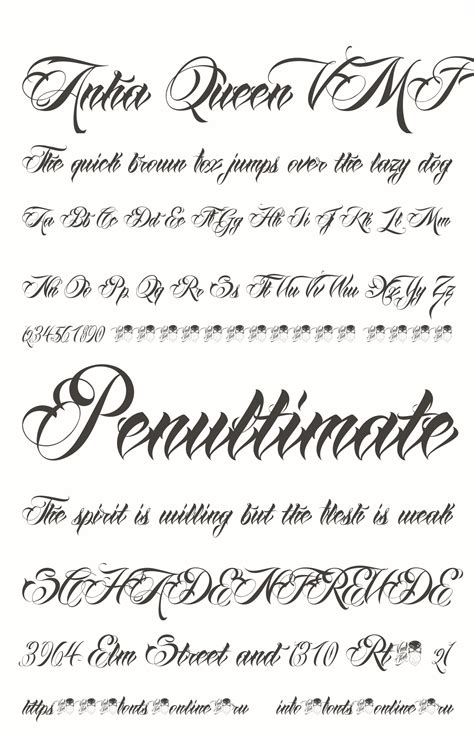 Anha Queen VMF
The quick brown fox jumps over the lazy dog
Aa Bb Cc Dd Ee Ff Gg Hh Ii Jj Kk Ll Mm
Nn Oo Pp Qq Rr Ss Tt Uu Vv Ww Xx Yy Zz
1234561890
Penultimate
The spirit is willing but the flesh is weak
SCHADENFREUDE
3964 Elm Street and 1370 Rt 21
https fonts online ru info fonts online ru